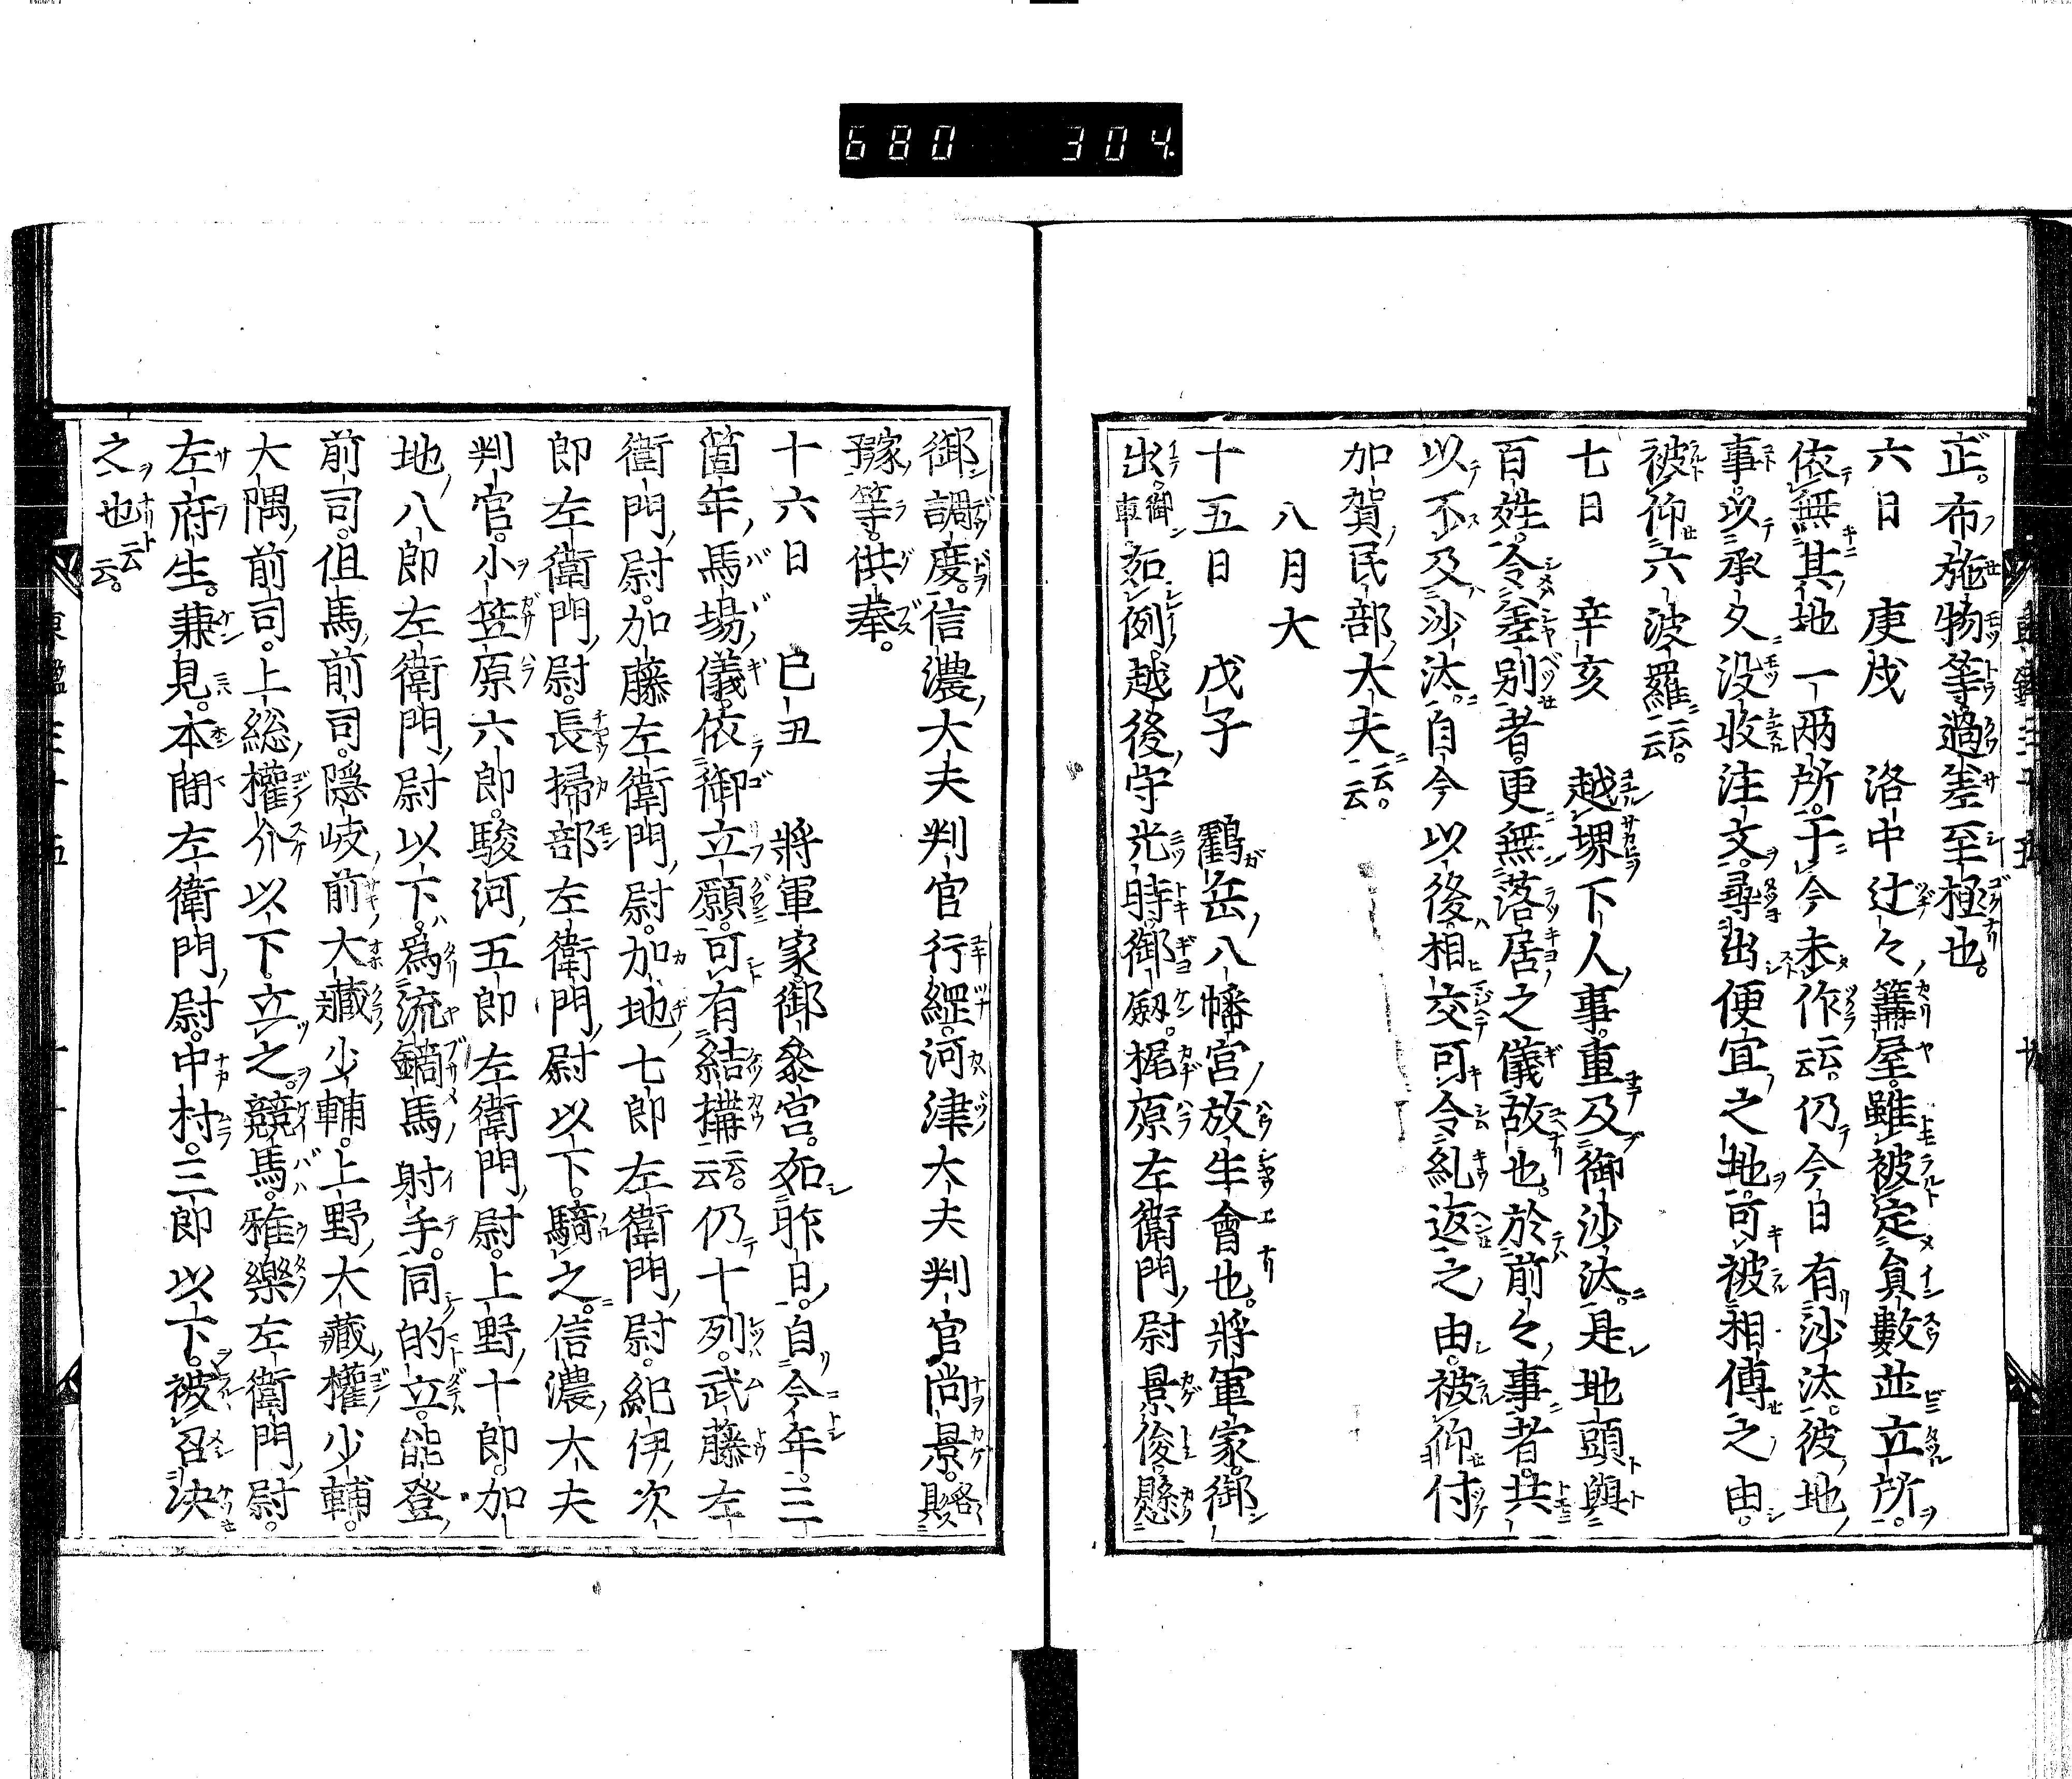 680 304
正。布施物等過差至極也。
六日 庚戌 洛中辻々篝屋。雖被定員數並立所。
依無其地一兩所。于今未作云云。仍今日有沙汰。彼地
事。以承久没收注文。尋出便宜之地。可被相傳之由。
被仰六波羅云云。
七日 辛亥 越堺下人事。重及御沙汰。是地頭與
百姓。令差別者。更無落居之儀故也。於前々事者。共
以不及沙汰。自今以後。相交可令糺返之由。被仰付
加賀民部大夫云云。
八月大
十五日 戊子 鶴岳八幡宮放生會也。將軍家。御
出。御車如例。越後守光時御劔。梶原左衛門尉景俊。懸
御調度。信濃大夫判官行綱。河津大夫判官尚景。各具
子等。供奉。
十六日 己丑 將軍家。御參宮。如昨日。自今年。三
箇年。馬場儀。依御立願。可有結構云云。仍十列。武藤左
衛門尉。加藤左衛門尉。加地七郎左衛門尉。紀伊次
郎左衛門尉。長掃部左衛門尉以下。騎之。信濃大夫
判官。小笠原六郎。駿河五郎左衛門尉。上野十郎。加
地八郎左衛門尉以下。爲流鏑馬射手。同的立。能登
前司。但馬前司。隱岐前大藏少輔。上野大藏權少輔。
大隅前司。上総權介以下。立之。競馬。雅樂左衛門尉。
左府生。兼見。本間左衛門尉。中村三郎以下。被召決
之也云云。